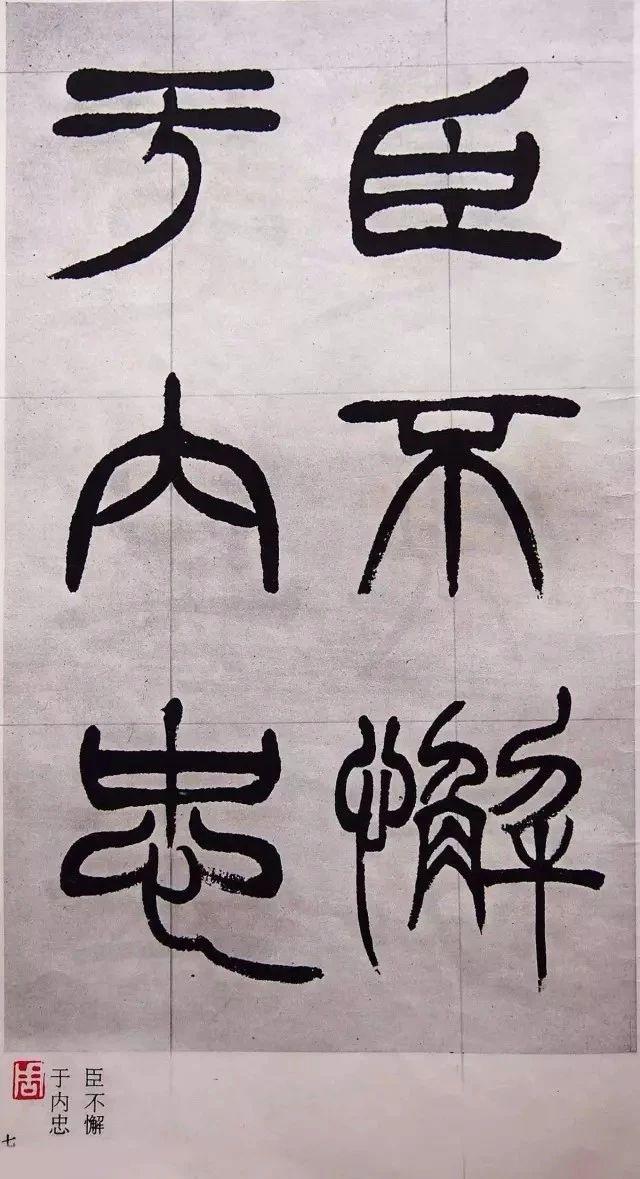 臣不懈
于内忠
臣不懈
于内忠
周
七